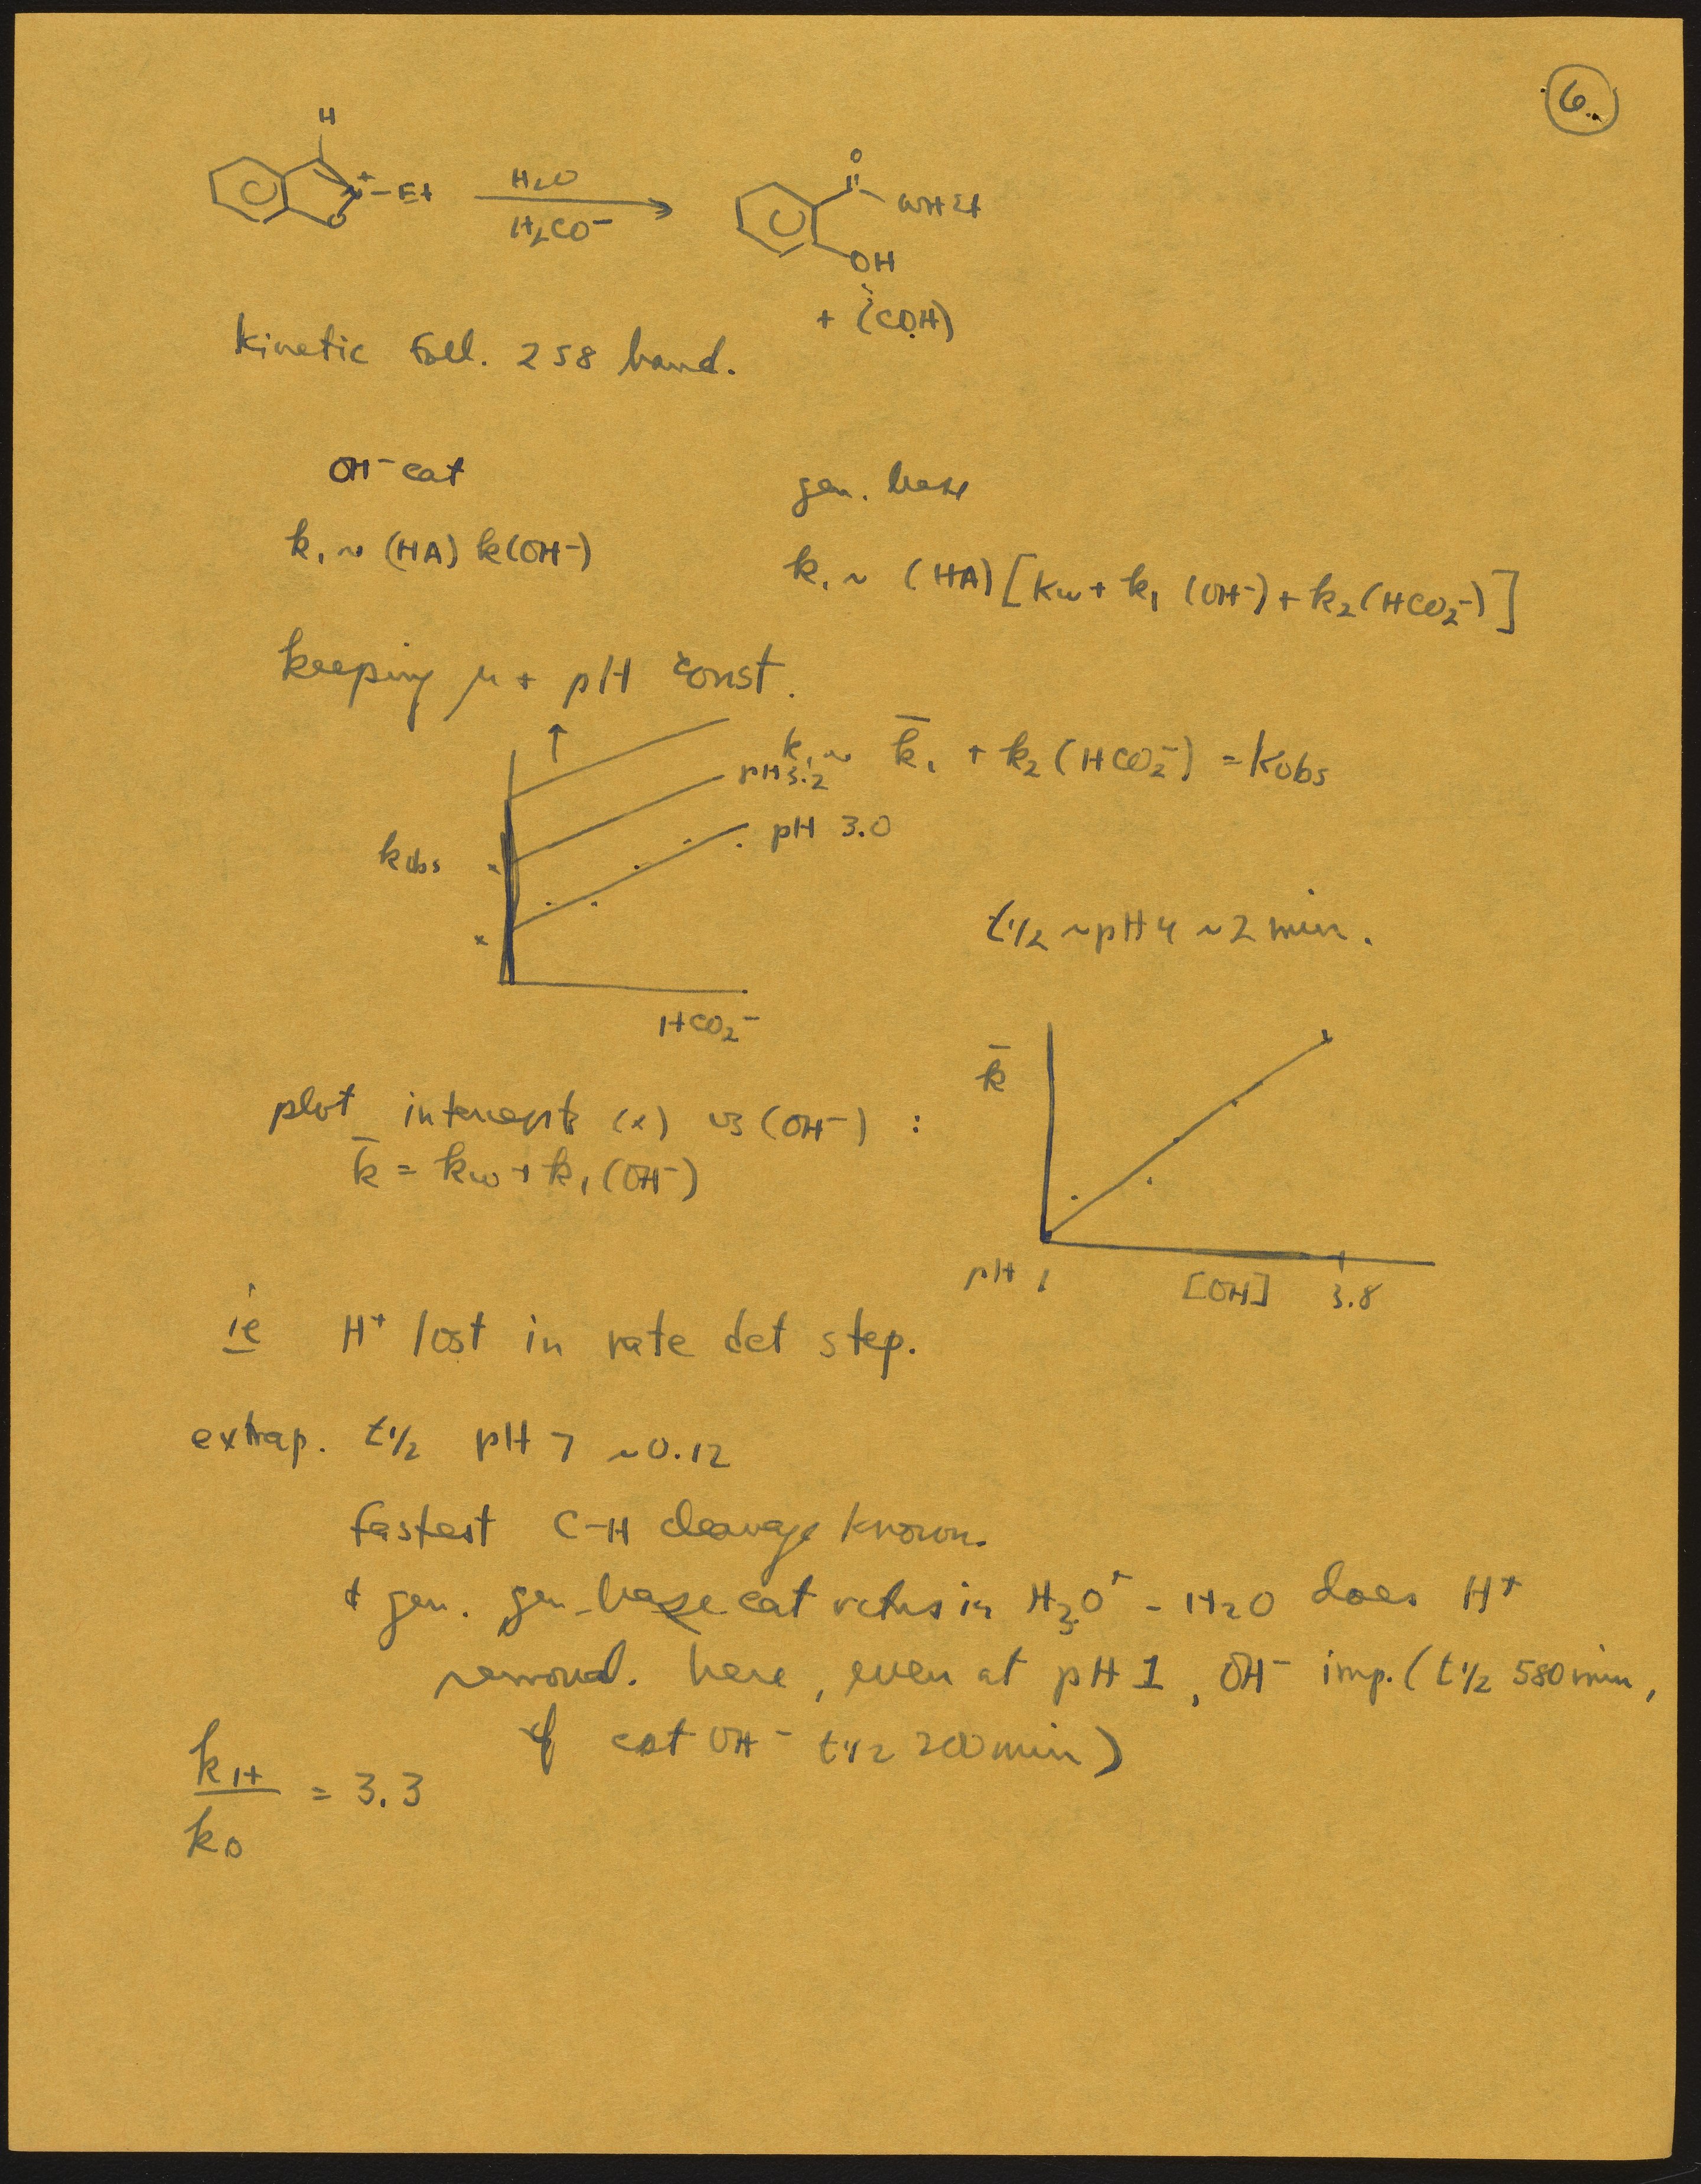 6.
H
N+–Et
O
H2O
H2CO⁻
O
NHEt
OH
+ (CO2H)
kinetic foll. 258 band.
OH⁻ cat
gen. base
k1 ~ (HA) k(OH⁻)
k1 ~ (HA) [Kw + k1 (OH⁻) + k2(HCO2⁻)]
keeping μ + pH const.
k1 ~ k̄1 + k2 (HCO2⁻) = Kobs
pH 3.2
pH 3.0
kobs
HCO2⁻
t1/2 ~ pH 4 ~ 2 min.
k̄
plot intercepts (x) vs (OH⁻) :
k̄ = kw + k1 (OH⁻)
pH 1 [OH] 3.8
ie H⁺ lost in rate det step.
extrap. t1/2 pH 7 ~0.12
fastest C–H cleavage known.
+ gen. gen-base cat in H3O⁺ - H2O does H⁺
removal. here, even at pH 1, OH⁻ imp. (t1/2 580 min,
cat OH⁻ t1/2 200 min)
kH/kD = 3.3